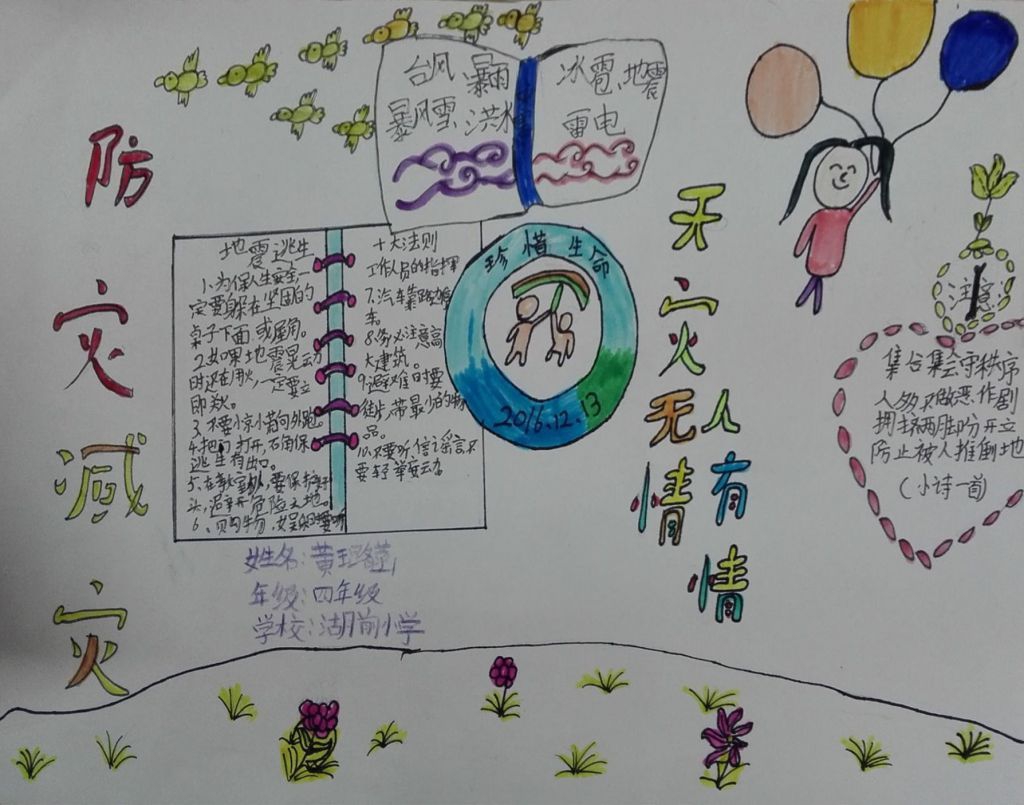 防灾减灾
台风、暴雨
暴风雪、洪水
冰雹、地震
雷电
地震逃生
1、为保人生安全,一
定要躲在坚固的
桌子下面或屋角。
2、如果地震晃动
时没在用火,一定要立
即
3、不要惊小着向外跑。
4、把门打开,
逃生有出口。
5、在室外,要保护好
头,避开危险之地。
6、
十大法则
工作人员的指挥
7、汽车靠路边
车。
8、务必注意高
大建筑。
9、避难时要
徒步,带最少的物
品。
10、不要听信谣言,不
要轻举妄动
珍惜生命
2016.12.13
天灾无情
人有情
注意
集合集会守秩序
人多不做恶作剧
拥挤两胜分开立
防止被人推倒地
(小诗一首)
姓名:黄
年级:四年级
学校:湖前小学